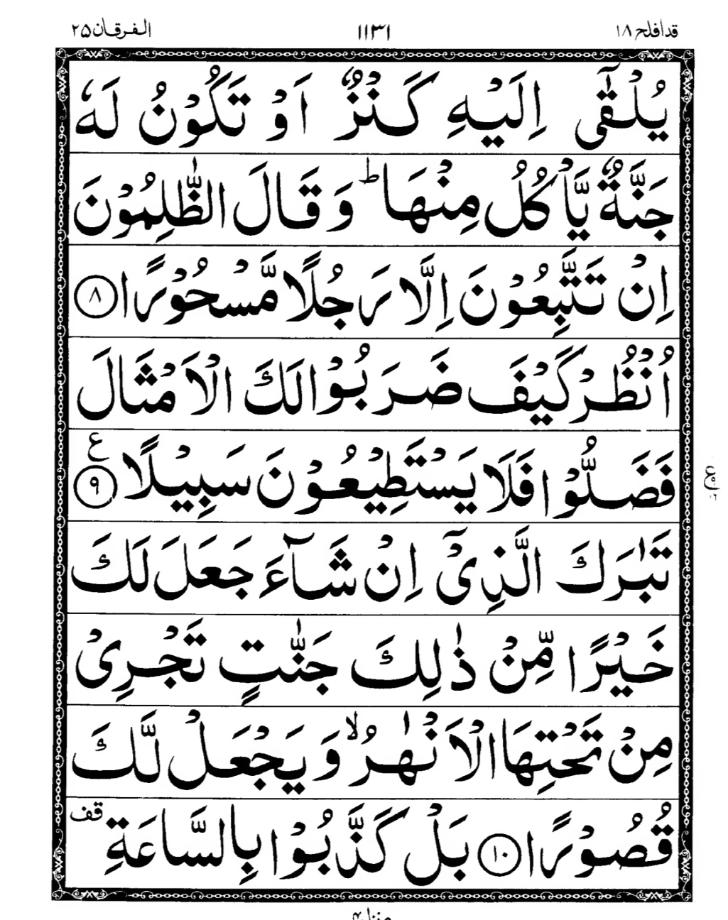 قدافلح ۱۸ ۱۱۳۱ الفرقان ۲۵
يُلْقٰٓى اِلَيْهِ كَنْزٌ اَوْ تَكُوْنُ لَهٗ
جَنَّةٌ يَّاْكُلُ مِنْهَا ؕ وَقَالَ الظّٰلِمُوْنَ
اِنْ تَتَّبِعُوْنَ اِلَّا رَجُلًا مَّسْحُوْرًا ۸
اُنْظُرْ كَيْفَ ضَرَبُوْا لَكَ الْاَمْثَالَ
فَضَلُّوْا فَلَا يَسْتَطِيْعُوْنَ سَبِيْلًا ۹ ع
تَبٰرَكَ الَّذِيْٓ اِنْ شَآءَ جَعَلَ لَكَ
خَيْرًا مِّنْ ذٰلِكَ جَنّٰتٍ تَجْرِيْ
مِنْ تَحْتِهَا الْاَنْهٰرُ ۙ وَيَجْعَلْ لَّكَ
قُصُوْرًا ۱۰ بَلْ كَذَّبُوْا بِالسَّاعَةِ قف